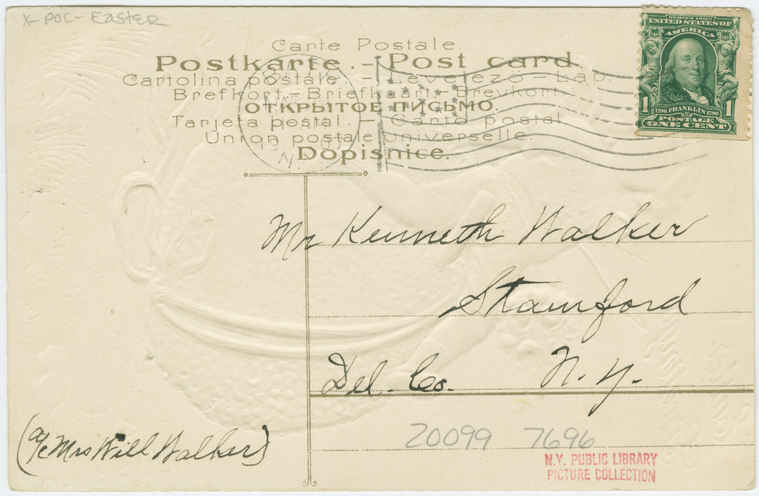 X- POC- EASTER
Carte Postale.
Postkarte. - Post card.
Cartolina postale. - Levelező-Lap.
Brefkort - Briefkaart - Brevkort
ОТКРЫТОЕ ПИСЬМО.
Tarjeta postal. - Carta postal
Union postale universelle
Dopisnice.
N.Y.
SERIES 1902
UNITED STATES OF
AMERICA
1 1790 FRANKLIN 1790 1
POSTAGE
ONE CENT
Mr Kenneth Walker
Stamford
Del. Co. N.Y.
(a/c Mrs Will Walker)
20099 7696
N.Y. PUBLIC LIBRARY
PICTURE COLLECTION